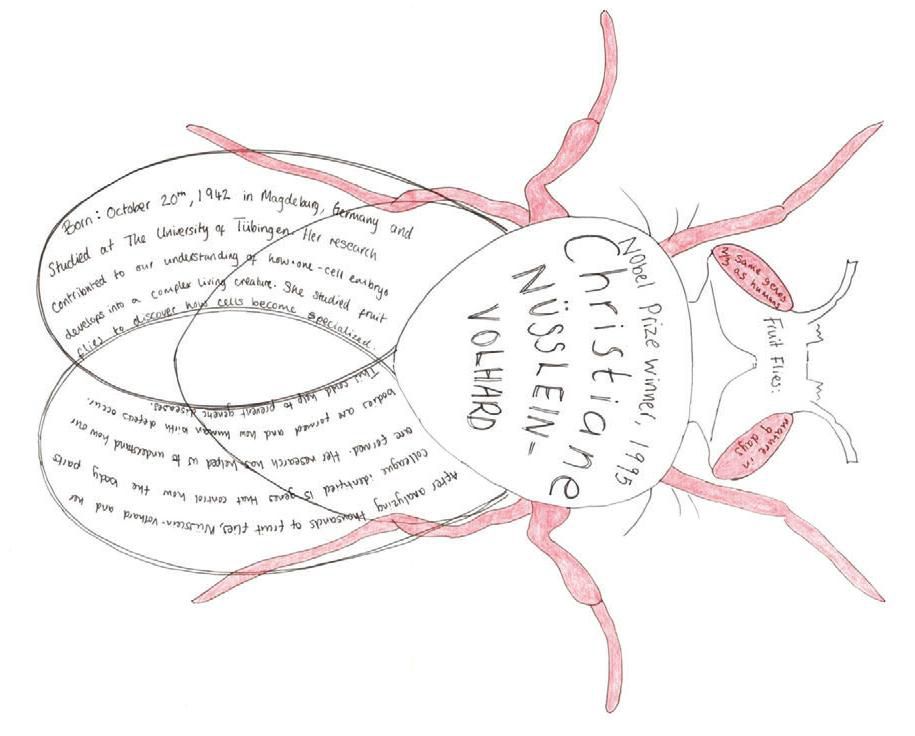 Nobel Prize winner, 1995
Christiane
NÜSSLEIN-
VOLHARD
Born: October 20th, 1942 in Magdeburg, Germany and
Studied at The University of Tübingen. Her research
contributed to our understanding of how one-cell embryo
develops into a complex living creature. She studied fruit
flies to discover how cells become specialized.
After analyzing thousands of fruit flies, Nüsslein-Volhard and her
colleague identified 15 genes that control how the body parts
are formed. Her research has helped us to understand how our
bodies are formed and how human birth defects occur.
This could help to prevent genetic diseases.
Fruit Flies:
2/3 same genes
as humans
mature in
9 days